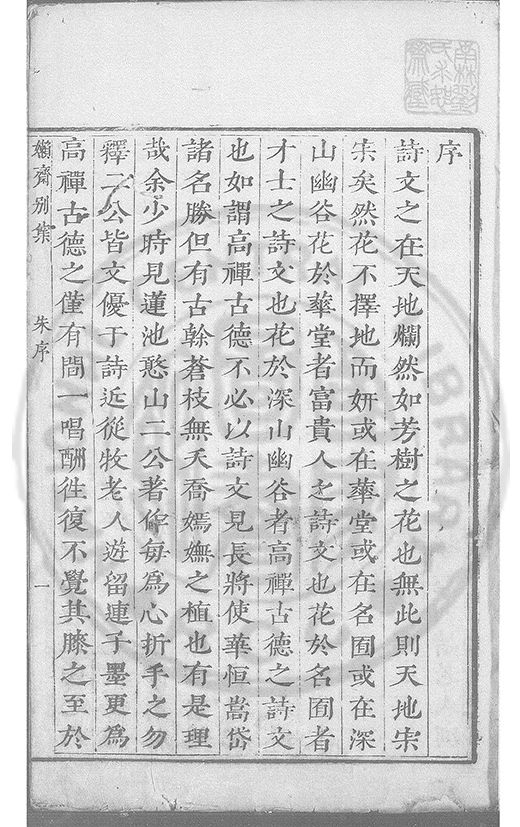 序
詩文之在天地爛然如芳樹之花也無此則天地宋
宋矣然花不擇地而妍或在華堂或在名囿或在深
山幽谷花於華堂者富貴人之詩文也花於名囿者
才士之詩文也花於深山幽谷者高禪古德之詩文
也如謂高禪古德不必以詩文見長將使華恒嵩岱
諸名勝但有古榦蒼枝無夭喬嫣嫵之植也有是理
哉余少時見蓮池憨山二公著俻每為心折手之勿
釋二公皆文優于詩近從牧老人遊留連子墨更為
高禪古德之僅有間一唱酬徃復不覺其膝之至於
嬾齋别集
朱序
一